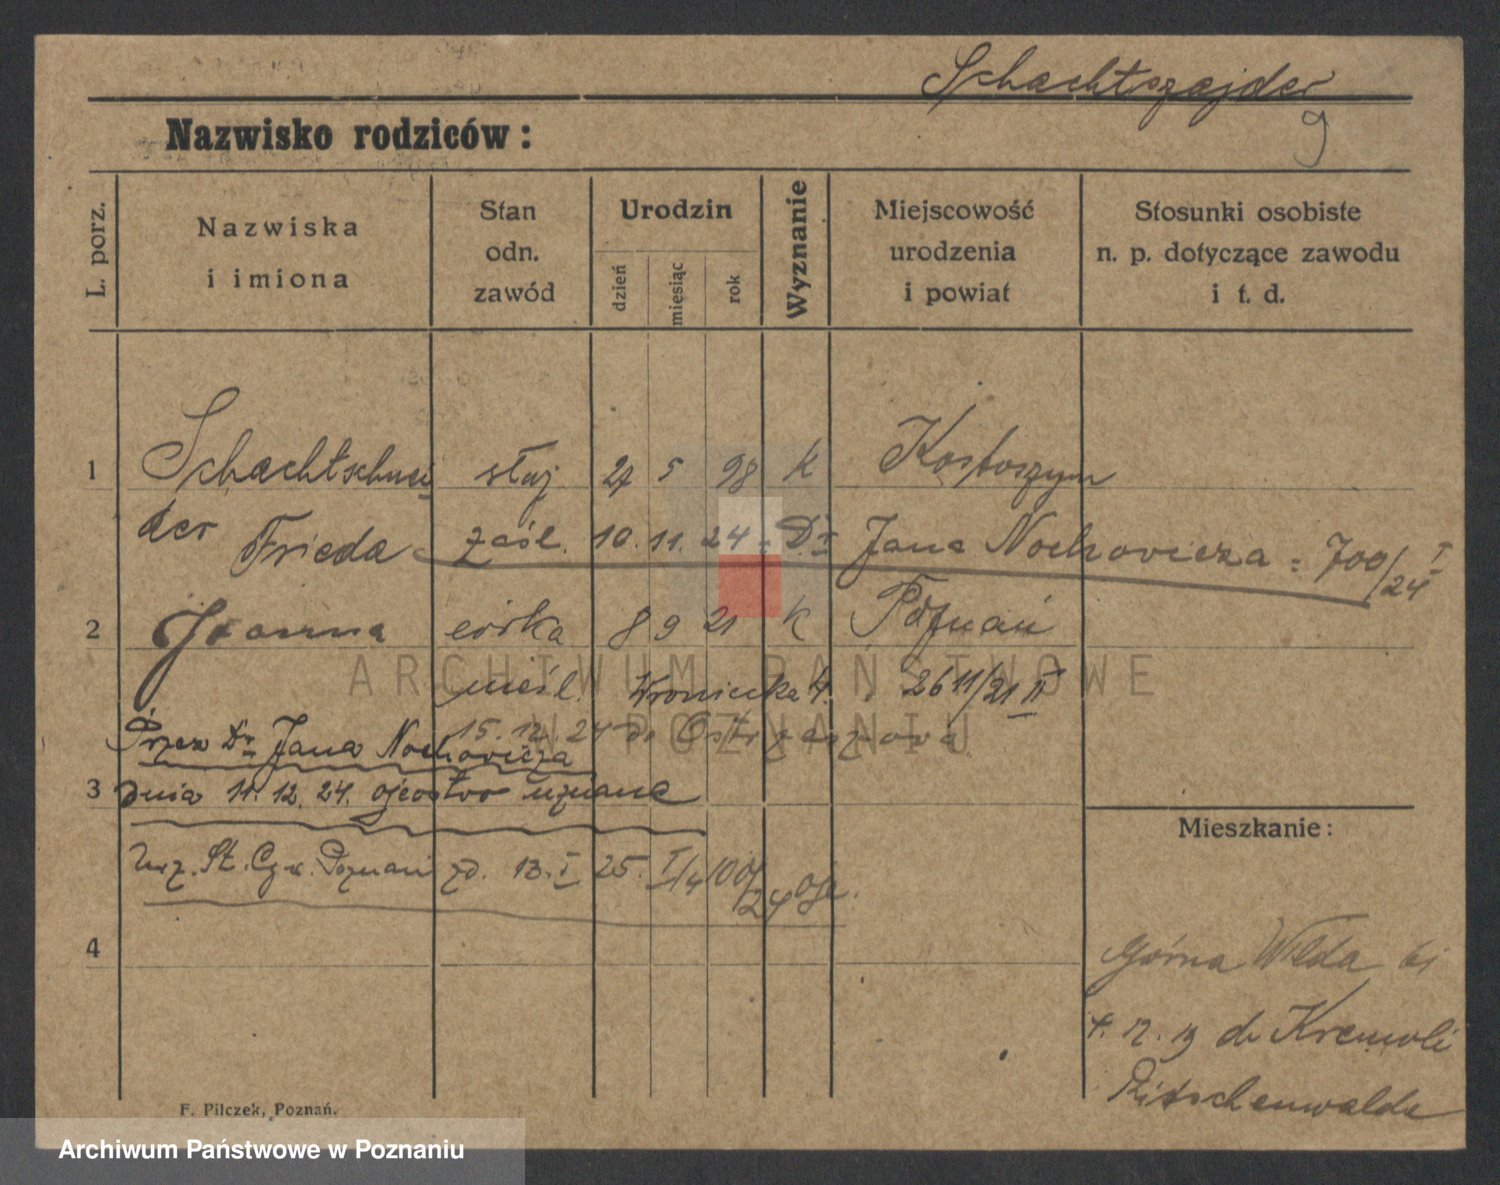 Schachtszajder
9
Nazwisko rodziców:
L. porz.
Nazwiska i imiona
Stan odn. zawód
Urodzin
dzień miesiąc rok
Wyznanie
Miejscowość urodzenia i powiat
Stosunki osobiste n. p. dotyczące zawodu i t. d.
1 Schachtschnei służ 27 5 98 k Kostoszyn
der Frieda zaśl. 10. 11. 24 = Dr Jana Nochowicza = 700/24 I
2 Joanna córka 8 9 21 k Poznań
nieśl. Wroniecka 4. 2611/21 II
15. 12. 24 do Ostrzeszowa
Przez Dr Jana Nochowicza
3 dnia 11. 12. 24. ojcostwo uznane
Urz. St. Cyw. Poznań zd. 13. I 25. I/4 100/24
4
Mieszkanie:
Górna Wilda 61
12. 19 do
F. Pilczek, Poznań.
ARCHIWUM PAŃSTWOWE
W POZNANIU
Archiwum Państwowe w Poznaniu